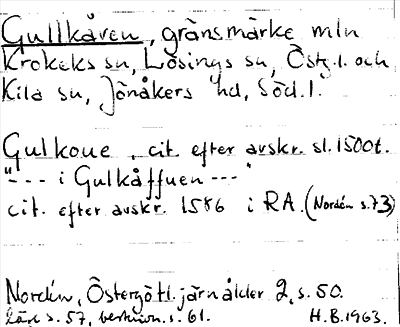 Gullkåven, gränsmärke mln
Krokeks sn, Lösings sn, Östg.l. och
Kila sn, Jönåkers hd, Söd.l.
Gulkoue, cit. efter avskr. sl. 1500t.
"--- i Gulkåffuen ---"
cit. efter avskr. 1586 i RA. (Nordén s. 73)
Nordén, Östergötl. järnålder 2, s. 50.
s. 57, beskrivn. s. 61. H.B. 1963.